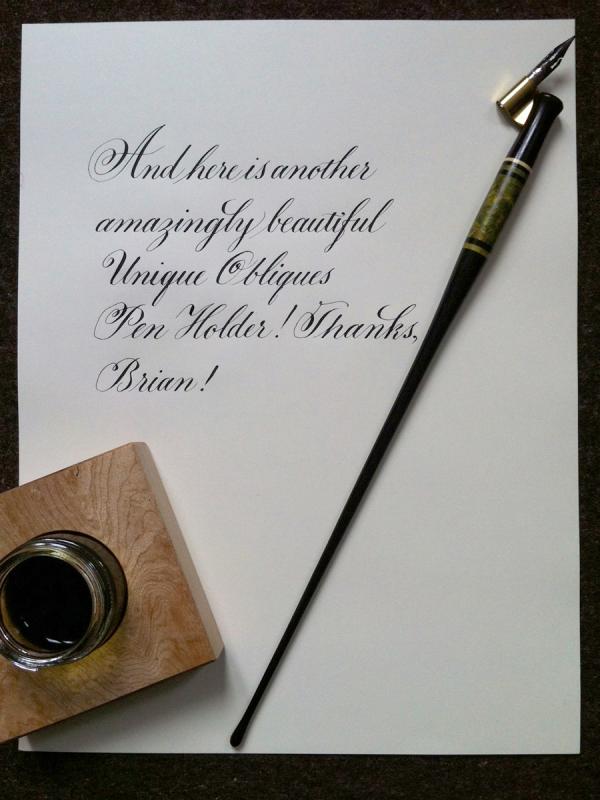 And here is another
amazingly beautiful
Unique Obliques
Pen Holder! Thanks,
Brian!